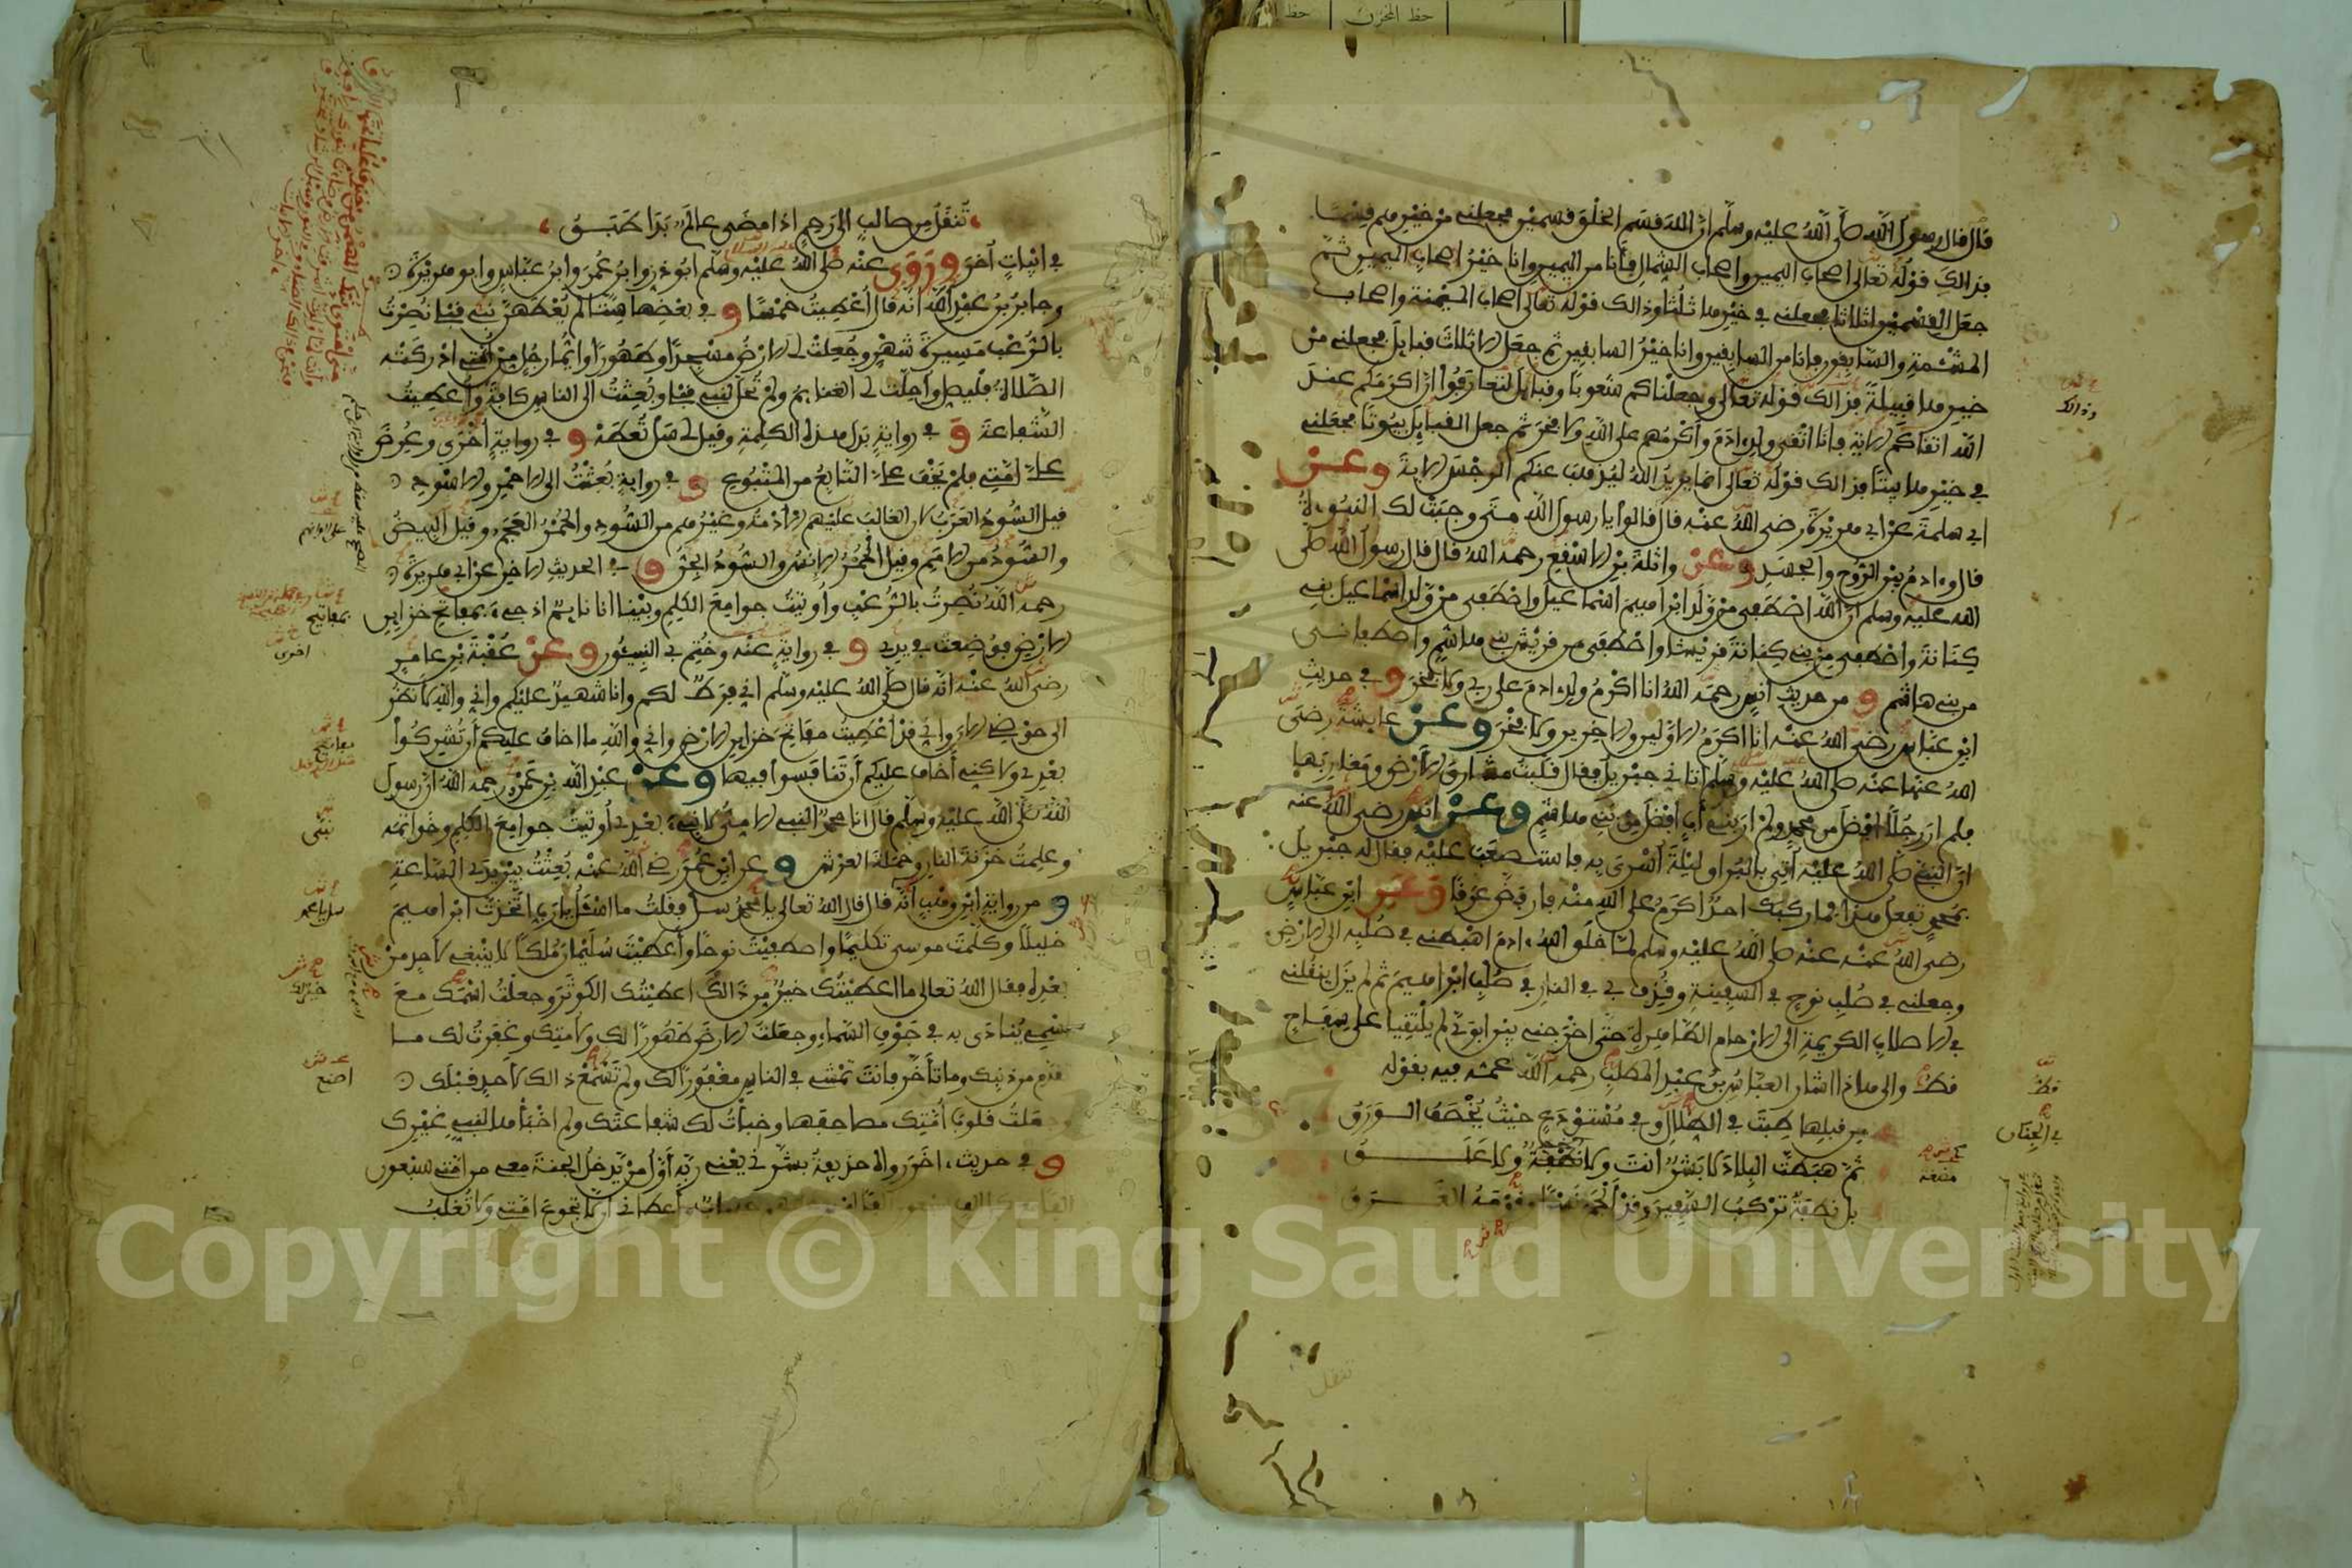 قال قال رسول الله صلى الله عليه وسلم ان الله قسم الخلق قسمين فجعلني من خيرهم قسما
فذالك قوله تعالى اصحاب اليمين واصحاب الشمال فأنا من اليمين وانا خير اصحاب اليمين ثم
جعل القسمين اثلاثا فجعلني في خيرها ثلثا وذالك قوله تعالى اصحاب الميمنة واصحاب
المشئمة والسابقون فانا من السابقين وانا خير السابقين ثم جعل الاثلاث قبايل فجعلني من
خيرها قبيلة فذالك قوله تعالى وجعلناكم شعوبا وقبايل لتعارفوا ان اكرمكم عند
الله اتقاكم الاية فانا اتقى ولد ادم وأكرمهم على الله ولا فخر ثم جعل القبايل بيوتا فجعلني
في خيرها بيتا فذالك قوله تعالى انما يريد الله ليذهب عنكم الرجس الاية وعن
ابي سلمة عن ابي هريرة رضي الله عنه قال قالوا يا رسول الله متى وجبت لك النبوءة
قال وءادم بين الروح والجسد وعن واثلة بن الاسقع رحمه الله قال قال رسول الله صلى
الله عليه وسلم ان الله اصطفى من ولد ابراهيم اسماعيل واصطفى من ولد اسماعيل بني
كنانة واصطفى من بني كنانة قريشا واصطفى من قريش بني هاشم واصطفاني
من بني هاشم و من حديث انس رحمه الله انا اكرم ولد ءادم على ربي ولا فخر و في حديث
ابن عباس رضي الله عنه انا اكرم الاولين والاخرين ولا فخر وعن عايشة رضي
الله عنها عنه صلى الله عليه وسلم اتاني جبريل فقال قلبت مشارق الأرض ومغاربها
فلم ار رجلا افضل من محمد ولم ار بني أب افضل من بني هاشم وعن انس رضي الله عنه
ان النبي صلى الله عليه أتي بالبراق ليلة أسري به فاستصعب عليه فقال له جبريل
بمحمد تفعل هذا فما ركبك احد اكرم على الله منه فارفض عرقا وعن ابن عباس
رضي الله عنه عنه صلى الله عليه وسلم لما خلق الله ءادم اهبطني في صلبه الى الارض
وجعلني في صلب نوح في السفينة وقذف بي في النار في صلب ابراهيم ثم لم يزل ينقلني
في الاصلاب الكريمة الى الارحام الطاهرة حتى اخرجني بين ابوي لم يلتقيا على سفاح
قط والى هذا اشار العباس بن عبد المطلب رحمه الله عمه فيه بقوله
من قبلها طبت في الظلال وفي مستودع حيث يخصف الورق
ثم هبطت البلاد لا بشر انت ولا نطفة ولا علق
بل نطفة تركب السفين وقد ألجم نسرا وقومه الغرق
وذالك
قط
في الجنان
مضغة
تنقل
تنقل من صالب الى رحم اذا مضى عالم بدا طبق
في ابيات أخر وروى عنه صلى الله عليه وسلم ابو ذر وابن عمر وابن عباس وابو هريرة
وجابر بن عبد الله انه قال أعطيت خمسا و في بعضها ستا لم يعطهن نبي قبلي نصرت
بالرعب مسيرة شهر وجعلت لي الارض مسجدا وطهورا وايما رجل من امتي ادركته
الصلاة فليصل وأحلت لي الغنايم ولم تحل لنبي قبلي وبعثت الى الناس كافة وأعطيت
الشفاعة و في رواية بدل هذه الكلمة وقيل لي سل تعطه و في رواية أخرى وعرض
علي أمتي فلم يخف علي التابع من المتبوع و في رواية بعثت الى الاحمر والاسود
قيل السود العرب لان الغالب عليهم الأدمة وغيرهم من السود والحمر العجم وقيل البيض
والسود من الامم وقيل الحمر الانس والسود الجن و في الحديث الاخر عن ابي هريرة
رحمه الله نصرت بالرعب وأوتيت جوامع الكلم وبينا انا نايم اذ جيء بمفاتح خزاين
الارض فوضعت في يدي و في رواية عنه وختم بي النبيئون وعن عقبة بن عامر
رضي الله عنه انه قال صلى الله عليه وسلم اني فرط لكم وانا شهيد عليكم واني والله لانظر
الى حوضي الان واني قد اعطيت مفاتح خزاين الارض واني والله ما اخاف عليكم أن تشركوا
بعدي ولاكني أخاف عليكم أن تنافسوا فيها وعن عبد الله بن عمرو رحمه الله ان رسول
الله صلى الله عليه وسلم قال انا محمد النبي الامي لا نبيء بعدي أوتيت جوامع الكلم وخواتمه
وعلمت خزنة النار وحملة العرش و عن ابن عمر رضي الله عنه بعثت بين يدي الساعة
و من رواية ابن وهب أنه قال قال الله تعالى يا محمد سل فقلت ما اسئل يا رب اتخذت ابراهيم
خليلا وكلمت موسى تكليما واصطفيت نوحا وأعطيت سليمان ملكا لا ينبغي لاحد من
بعده فقال الله تعالى ما اعطيتك خير من ذالك اعطيتك الكوثر وجعلت اسمك مع
اسمي ينادى به في جوف السماء وجعلت الارض طهورا لك ولامتك وغفرت لك ما
تقدم من ذنبك وما تأخر فانت تمشي في الناس مغفورا لك ولم اصنع ذالك لاحد قبلك
وجعلت قلوب أمتك مصاحفها وخبأت لك شفاعتك ولم اخبأها لنبي غيرك
و في حديث ءاخر رواه حذيفة بشرني يعني ربه أول من يدخل الجنة معي من امتي سبعون
الفا مع كل الف سبعون الفا ليس عليهم حساب وأعطاني ان لا تجوع امتي ولا تغلب
بمفاتيح
اخرى
مفاتيح
نبي
سل يا محمد
خير لك
اصنع